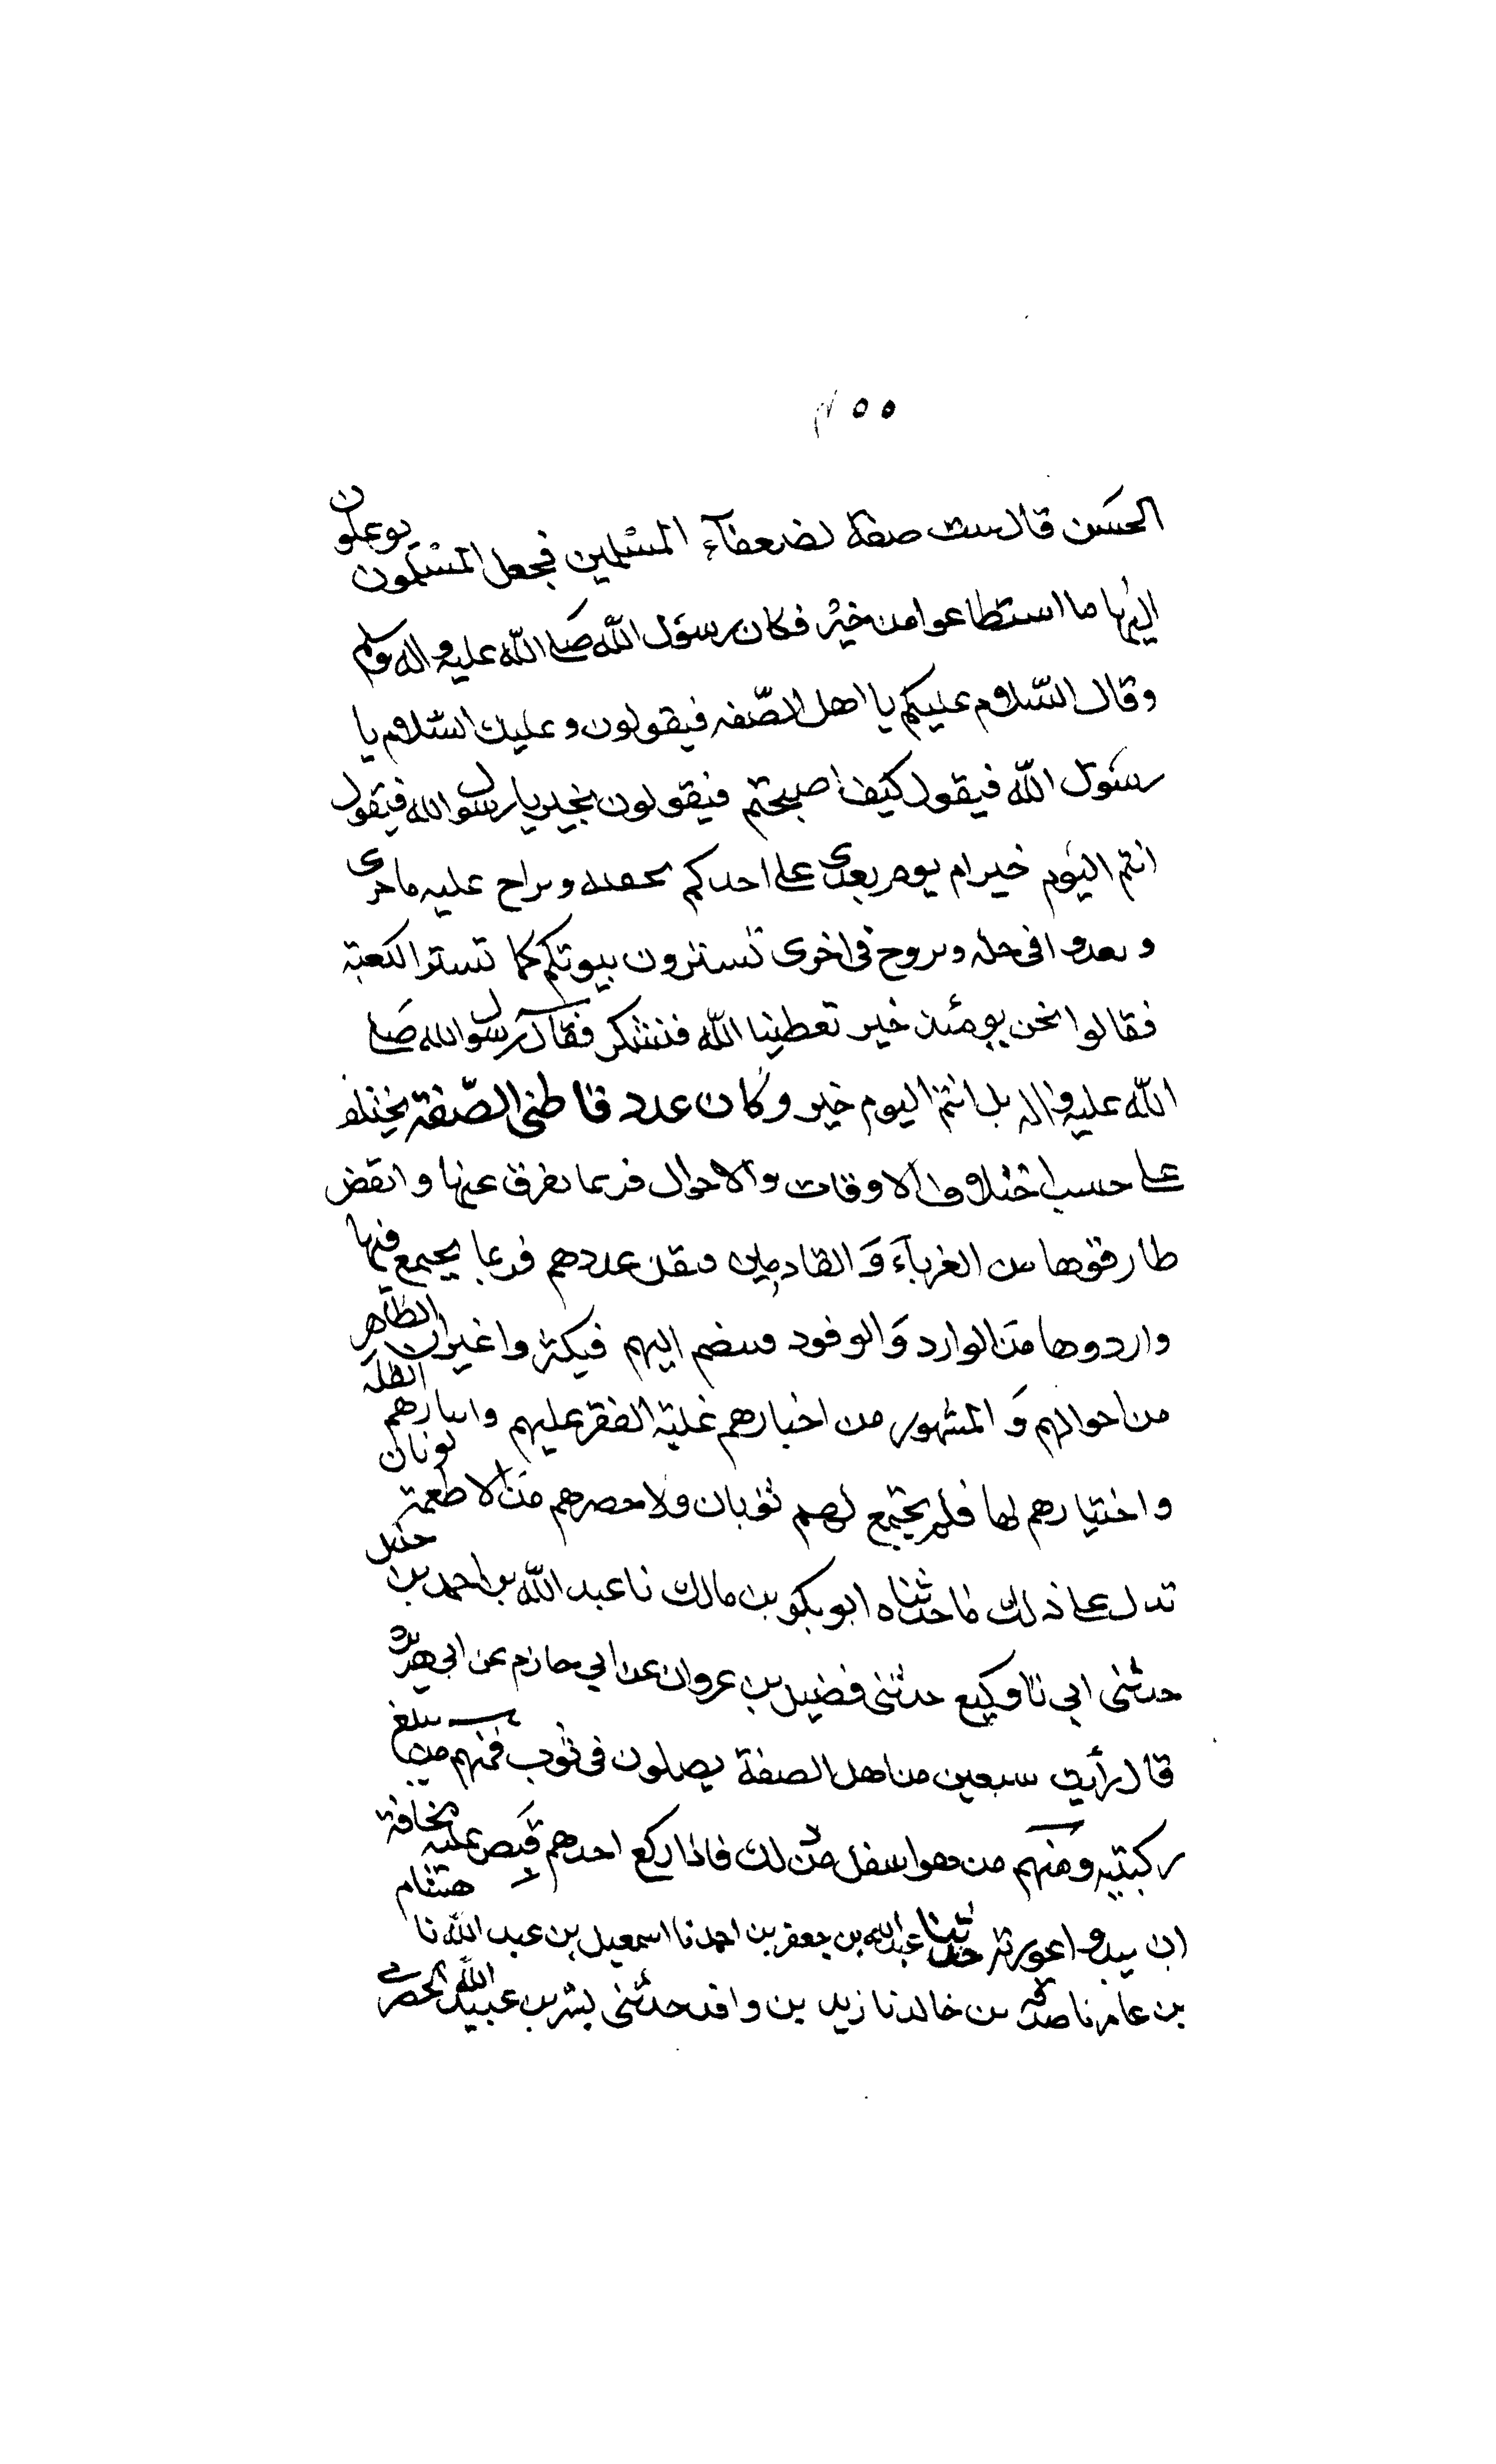 ٥٥٣
الحسن قال بنيت صفة لضعفاء المسلمين فجعل المسلمون يوعلون
اليها ما استطاعوا من خير فكان رسول الله صلى الله عليه واله وسلم
وقال السلام عليكم يا اهل الصفه فيقولون وعليك السلام يا
رسول الله فيقول كيف اصبحتم فيقولون بخير يا رسول الله فيقول
انتم اليوم خير ام يوم يغدى على احدكم بحفنه ويراح عليه باخرى
ويغدوا في حله ويروح في اخرى تسترون بيوتكم كما تستر الكعبة
فقالوا نحن يومئذ خير تعطينا الله فنشكر فقال رسول الله صلى
الله عليه واله بل انتم اليوم خير وكان عدد قاطني الصفة يختلف
على حسب اختلاف الاوقات والاحوال فربما تفرق عنها وانقض
طارقوها من الغرباء والقادمين فيقل عددهم فربما يجتمع فيها
واردوها من الوارد والوفود فينضم اليهم فيكثروا غير ان الظاهر
من احوالهم والمشهور من اخبارهم غلبة الفقر عليهم وايثارهم القلة
واختيارهم لها فلم يجتمع لهم ثوبان ولا حصرهم من الاطعمة لونان
تدل على ذلك ما حدثناه ابو بكر بن مالك نا عبد الله بن احمد بن حنبل
حدثني ابي نا وكيع حدثني فضيل بن عروان عن ابي حازم عن ابي هريرة
قال رأيت سبعين من اهل الصفة يصلون في ثوب فمنهم من يبلغ
ركبتيه ومنهم من هو اسفل من ذلك فاذا ركع احدهم قبص عليه مخافة
ان يبدوا عورته حدثنا عبد الله بن جعفر بن احمد نا اسمعيل بن عبد الله نا هشام
بن عامر نا صدقه بن خالد نا زيد بن واقد حدثني بشر بن عبيد الله الحضرمي